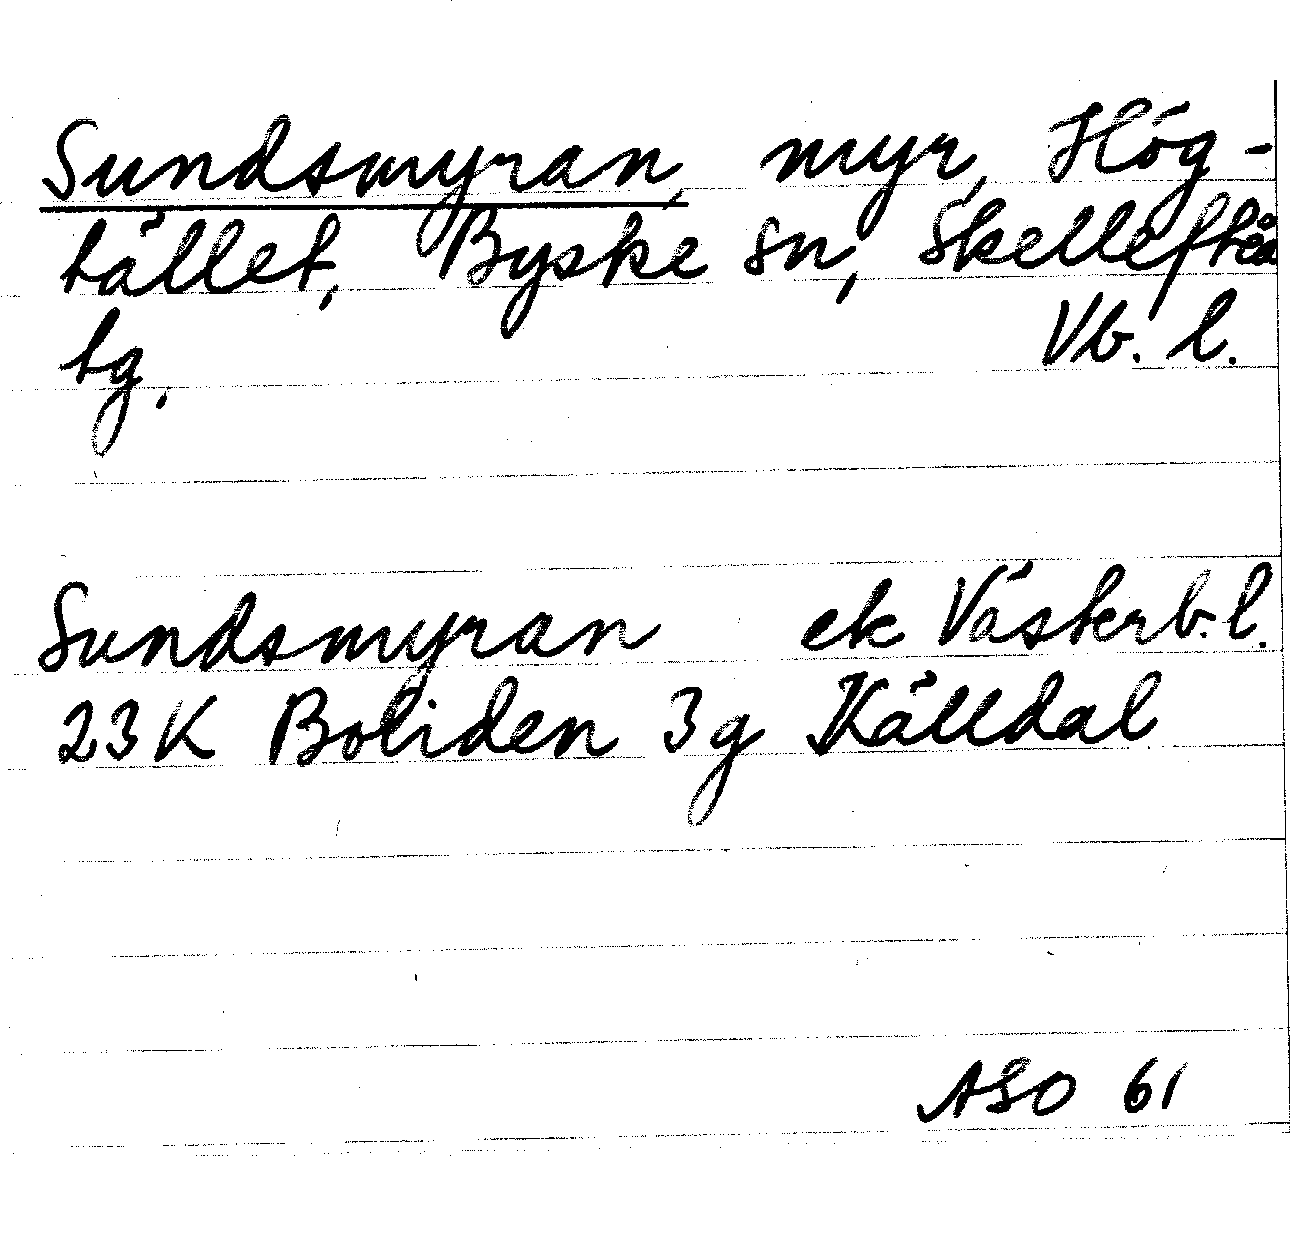 Sundsmyran, myr, Hög-
tället, Byske sn, Skellefteå
tg. Vb. l.
Sundsmyran ek Västerb.l.
23K Boliden 3g Källdal
ASO 61